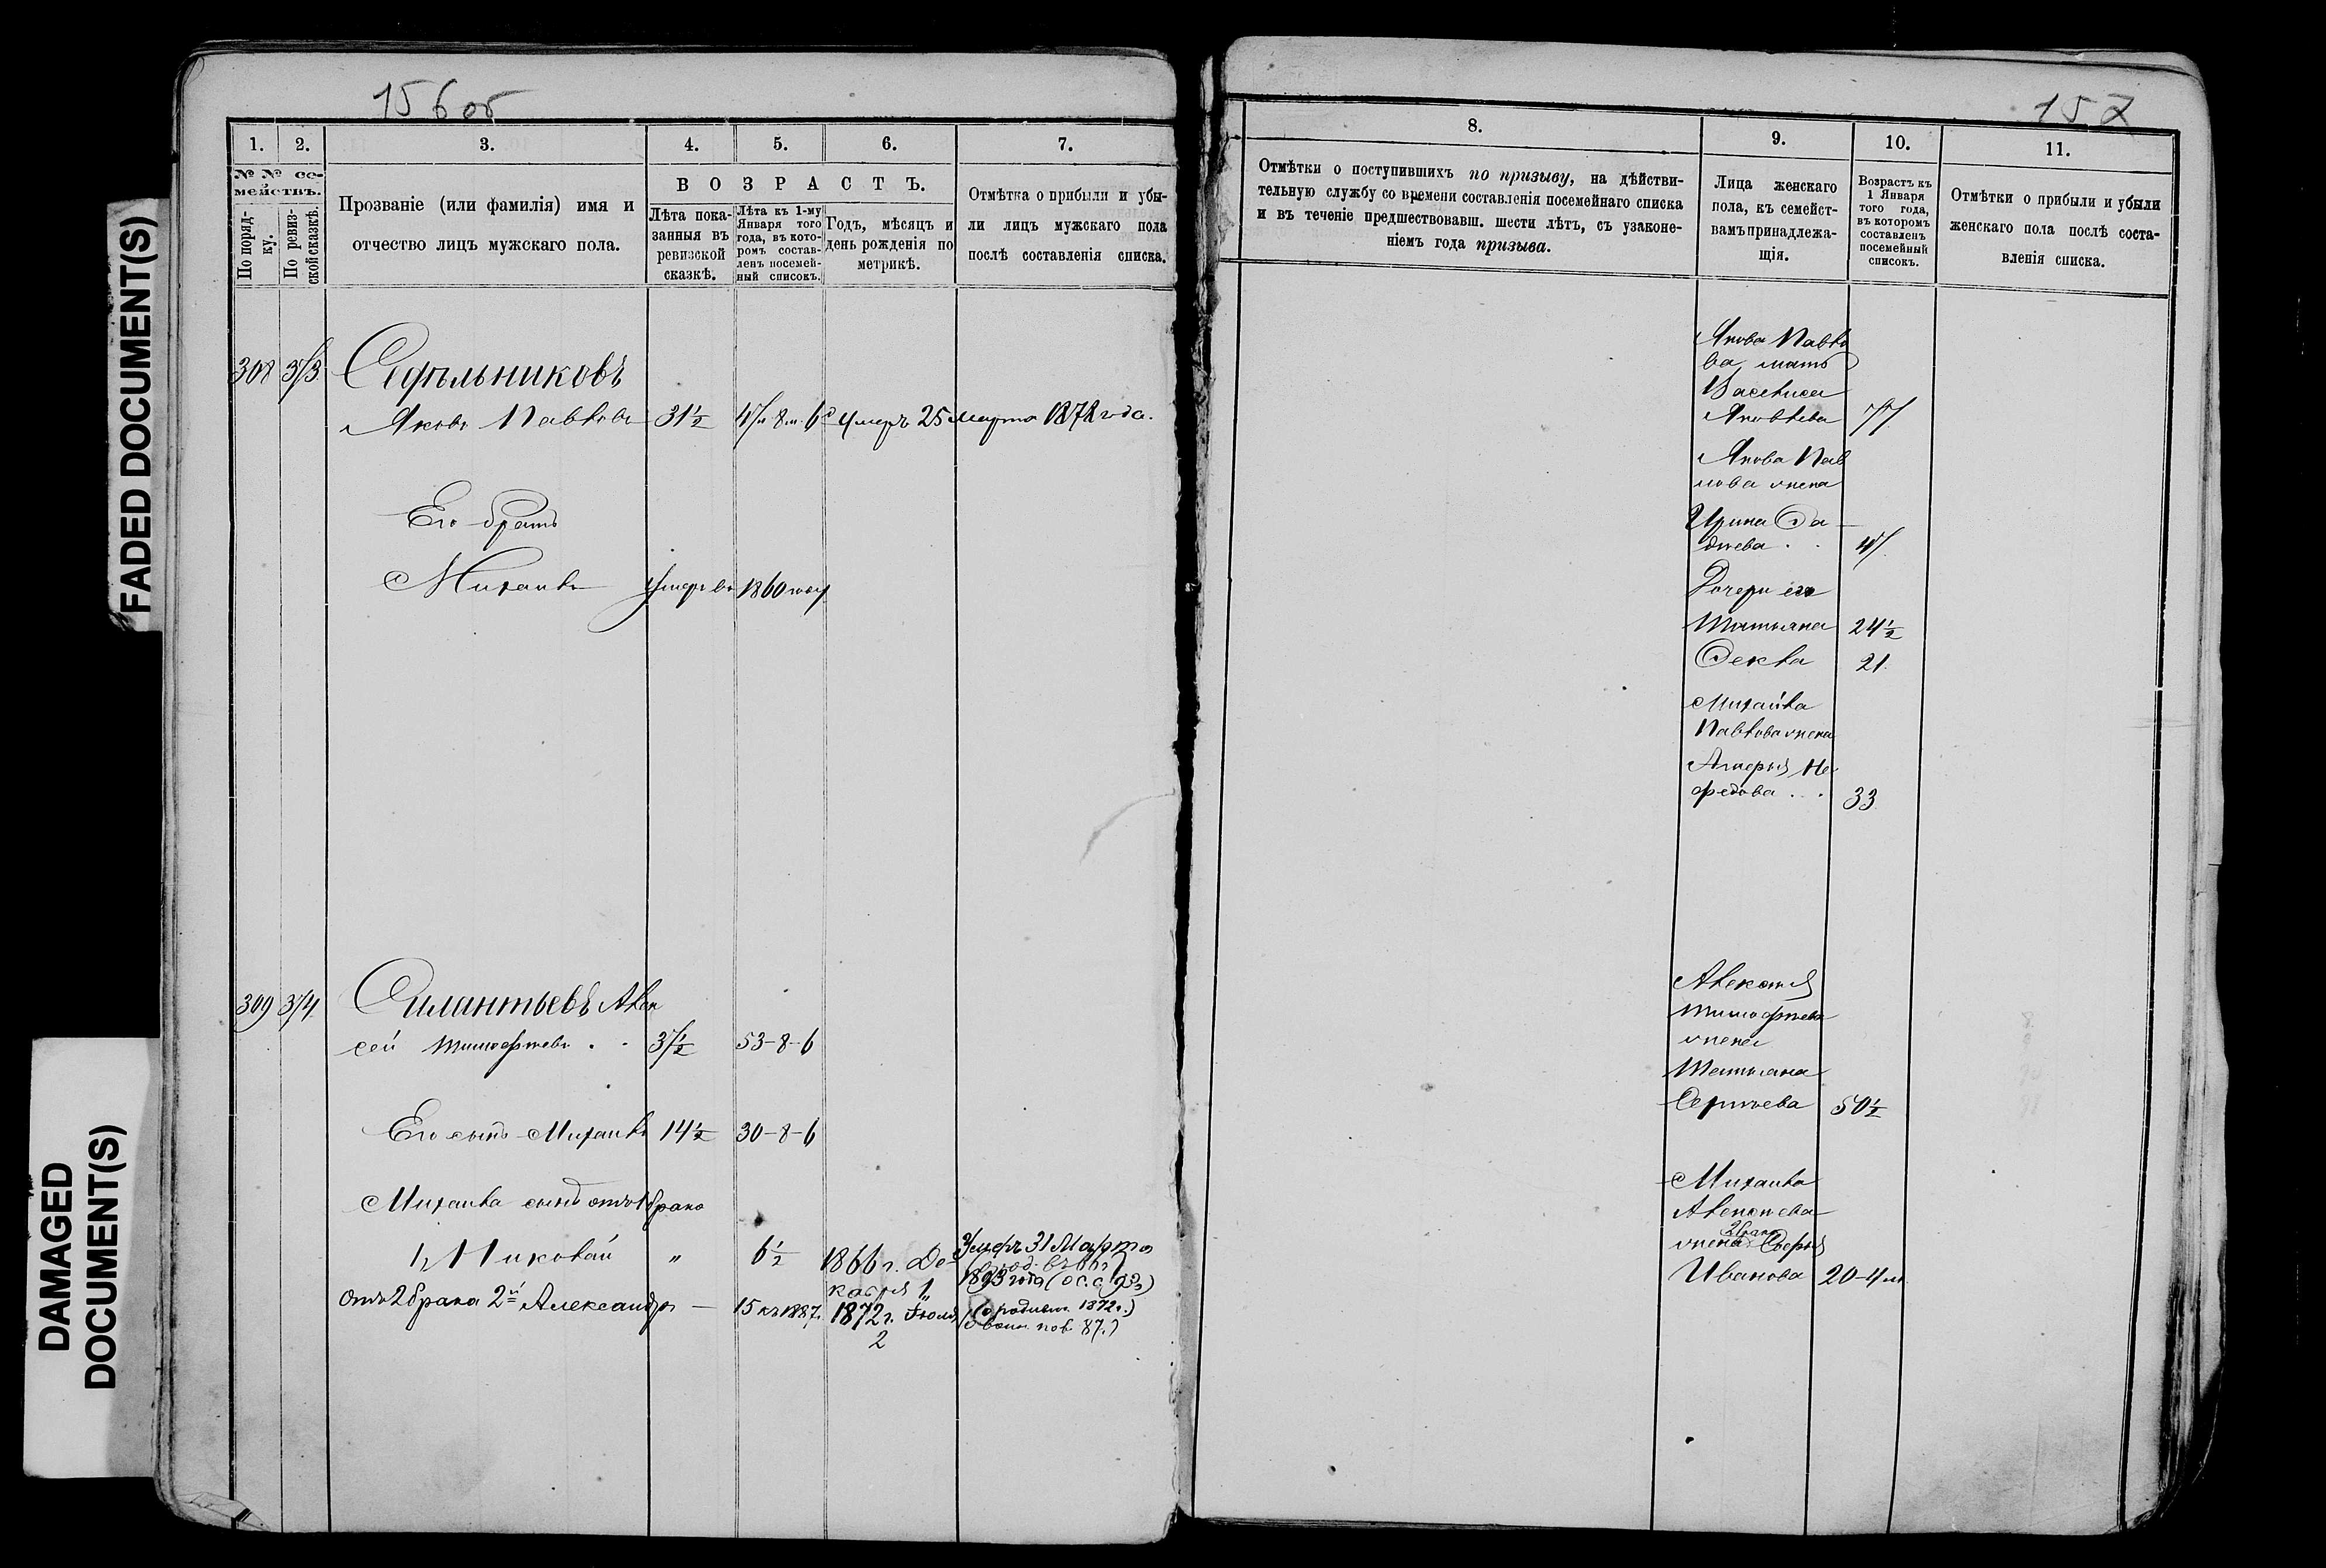 FADED DOCUMENT(S)
DAMAGED
DOCUMENT(S)
156 об
1. 2. 3. 4. 5. 6. 7.
№ № се-
мействъ.
По поряд-
ку.
По ревиз-
ской сказкѣ.
Прозваніе (или фамилія) имя и
отчество лицъ мужскаго пола.
ВОЗРАСТЪ.
Лѣта пока-
занныя въ
ревизской
сказкѣ.
Лѣта къ 1-му
Января того
года, въ кото-
ромъ состав-
ленъ посемей-
ный списокъ.
Годъ, мѣсяцъ и
день рожденія по
метрикѣ.
Отмѣтка о прибыли и убы-
ли лицъ мужскаго пола
послѣ составленія списка.
308
Яковъ Павловъ 31½ Умеръ 25 марта 1872 года.
Его братъ
Михаилъ Умеръ въ 1860 году
309 374 Силантьевъ Алек
сей Тимофеевъ . . 53-8-6
Его сынъ Михаилъ 14½ 30-8-6
Михаила сынъ отъ 1 брака
1, Николай „ 6½ 1866 г. Де-
кабря 1„
Умеръ 31 Марта
1893 года
отъ 2 брака 2й Александръ — 15 къ 1887. 1872 г. Іюля
2
(о родивш. 1872 г.)
87.)
157
8. 9. 10. 11.
Отмѣтки о поступившихъ по призыву, на дѣйстви-
тельную службу со времени составленія посемейнаго списка
и въ теченіе предшествовавш. шести лѣтъ, съ узаконе-
ніемъ года призыва.
Лица женскаго
пола, къ семейст-
вамъ принадлежа-
щія.
Возрастъ къ
1 Января
того года,
въ которомъ
составленъ
посемейный
списокъ.
Отмѣтки о прибыли и убыли
женскаго пола послѣ соста-
вленія списка.
Якова Павло
ва мать
Василиса
Яковлева 77
Якова Пав
лова жена
Ирина Фа-
дѣева . .
Дочери его
Татьяна 24½
Фекла 21
Михаила
Павлова жена
Не
федова . . 33
Алексѣя
Тимофеева
жена
Татьяна
Сергѣева 50½
Михаила
Алексѣева
2 брака
жена Софья
Иванова 20-4 м